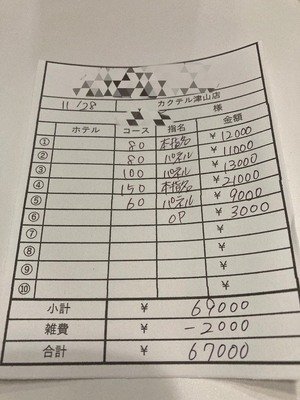 11/28 カクテル津山店
様
ホテル コース 指名 金額
① 80 本指名 ¥12000
② 80 パネル ¥11000
③ 100 パネル ¥13000
④ 150 本指名 ¥21000
⑤ 60 パネル ¥9000
⑥ OP ¥3000
⑦ ¥
⑧ ¥
⑨ ¥
⑩ ¥
小計 ¥ 69000
雑費 ¥ -2000
合計 ¥ 67000